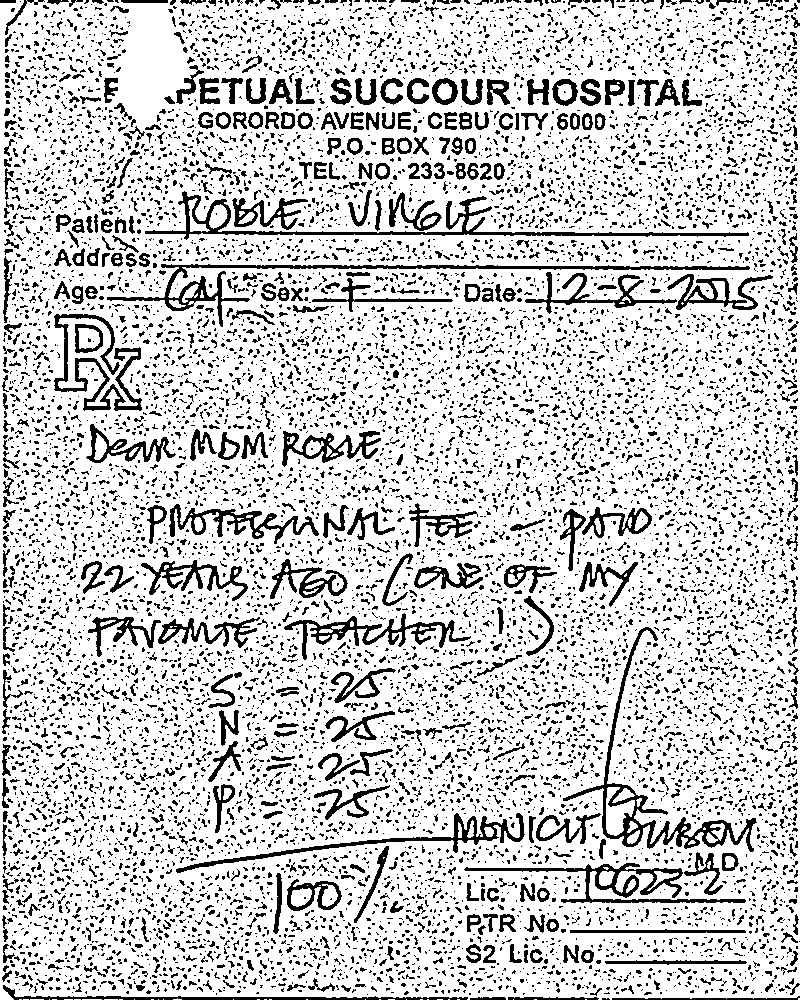 PERPETUAL SUCCOUR HOSPITAL
GORORDO AVENUE, CEBU CITY 6000
P.O. BOX 790
TEL. NO. 233-8620
Patient: ROBLE VIRGIE
Address:
Age: Sex: F Date: 12-8-2015
Rx
Dear MDM ROBLE,
PROFESSIONAL FEE - PAID
22 YEARS AGO (ONE OF MY
FAVORITE TEACHER!)
S = 25
N = 25
A = 25
P = 25
100%
M.D.
Lic. No.
PTR No.
S2 Lic. No.